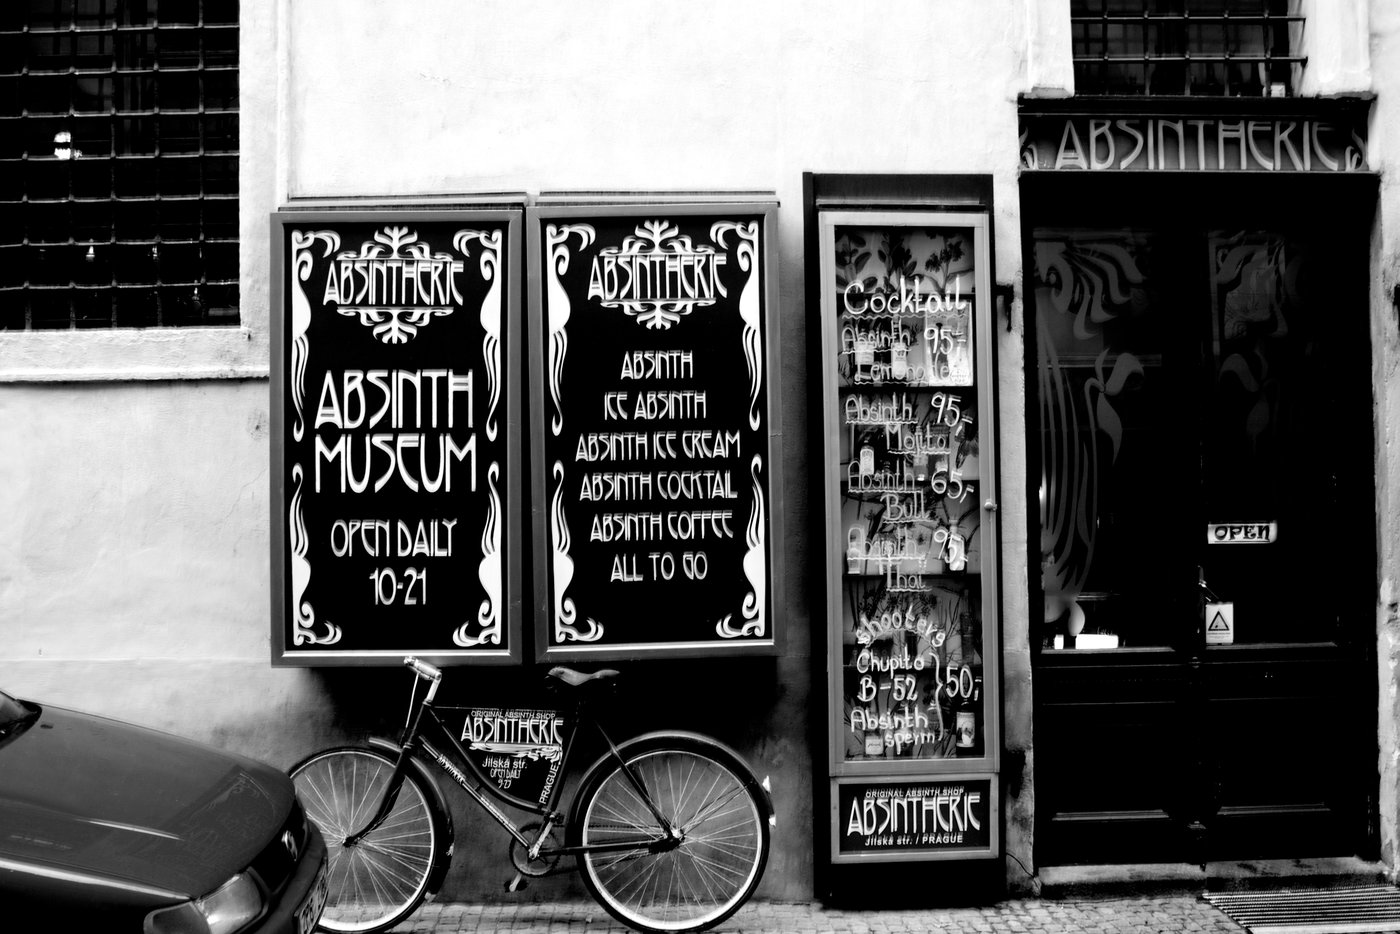 ABSINTHERIE
ABSINTH
MUSEUM
OPEN DAILY
10-21
ABSINTHERIE
ABSINTH
ICE ABSINTH
ABSINTH ICE CREAM
ABSINTH COCKTAIL
ABSINTH COFFEE
ALL TO GO
Cocktail
Absinth 95,-
Lemonade
Absinth 95,-
Mojito
Absinth 65,-
Bull
Absinth 95,-
Thai
shooters
Chupito
B-52 50,-
Absinth
sperm
ORIGINAL ABSINTH SHOP
ABSINTHERIE
Jilská str. / PRAGUE
ABSINTHERIE
OPEN
ORIGINAL ABSINTH SHOP
ABSINTHERIE
Jilská str.
OPEN DAILY
PRAGUE